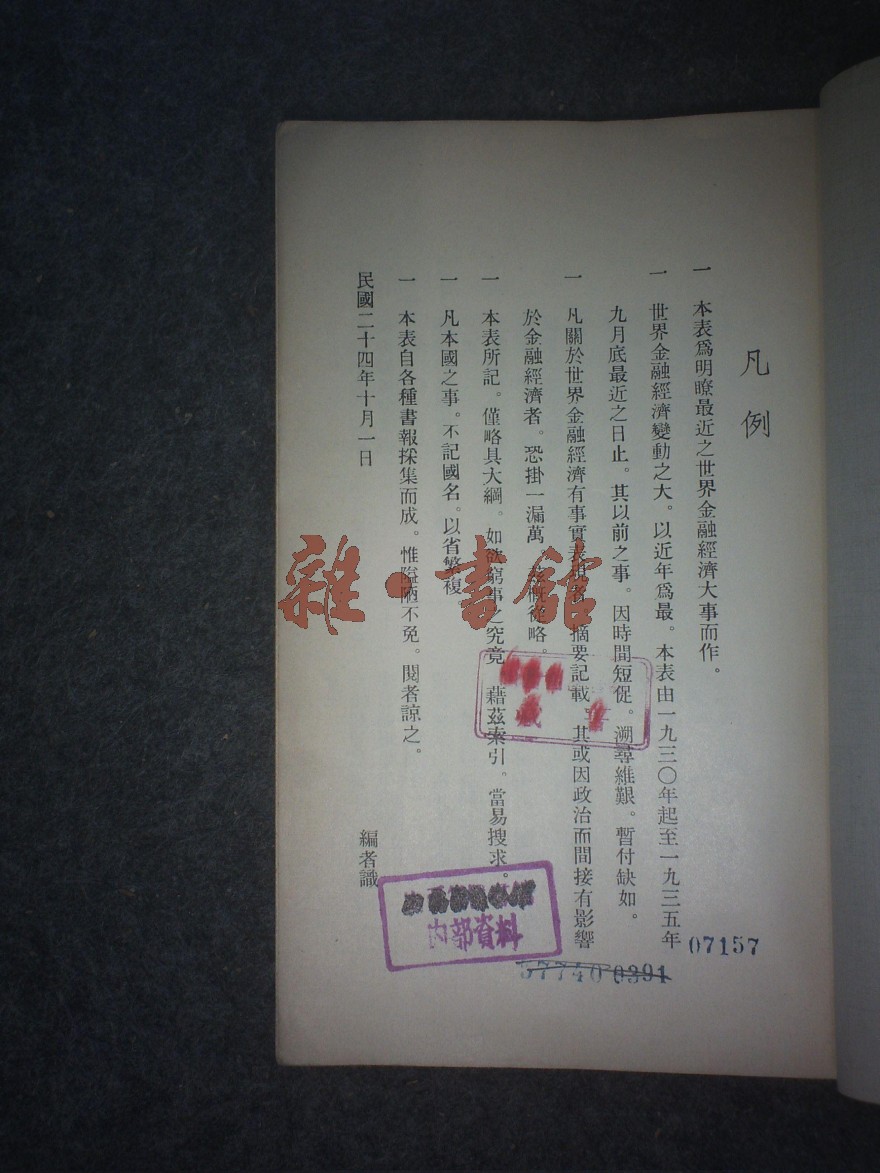 凡例
一 本表為明瞭最近之世界金融經濟大事而作。
一 世界金融經濟變動之大。以近年為最。本表由一九三〇年起至一九三五年
九月底最近之日止。其以前之事。因時間短促。溯尋維艱。暫付缺如。
一 凡關於世界金融經濟有事實表現者。摘要記載。其或因政治而間接有影響
於金融經濟者。恐掛一漏萬。概從略。
一 本表所記。僅略具大綱。如欲窮事之究竟。藉茲索引。當易搜求。
一 凡本國之事。不記國名。以省繁複
一 本表自各種書報採集而成。惟隘陋不免。閱者諒之。
民國二十四年十月一日
編者識
內部資料
07157
577400391
雜·書館